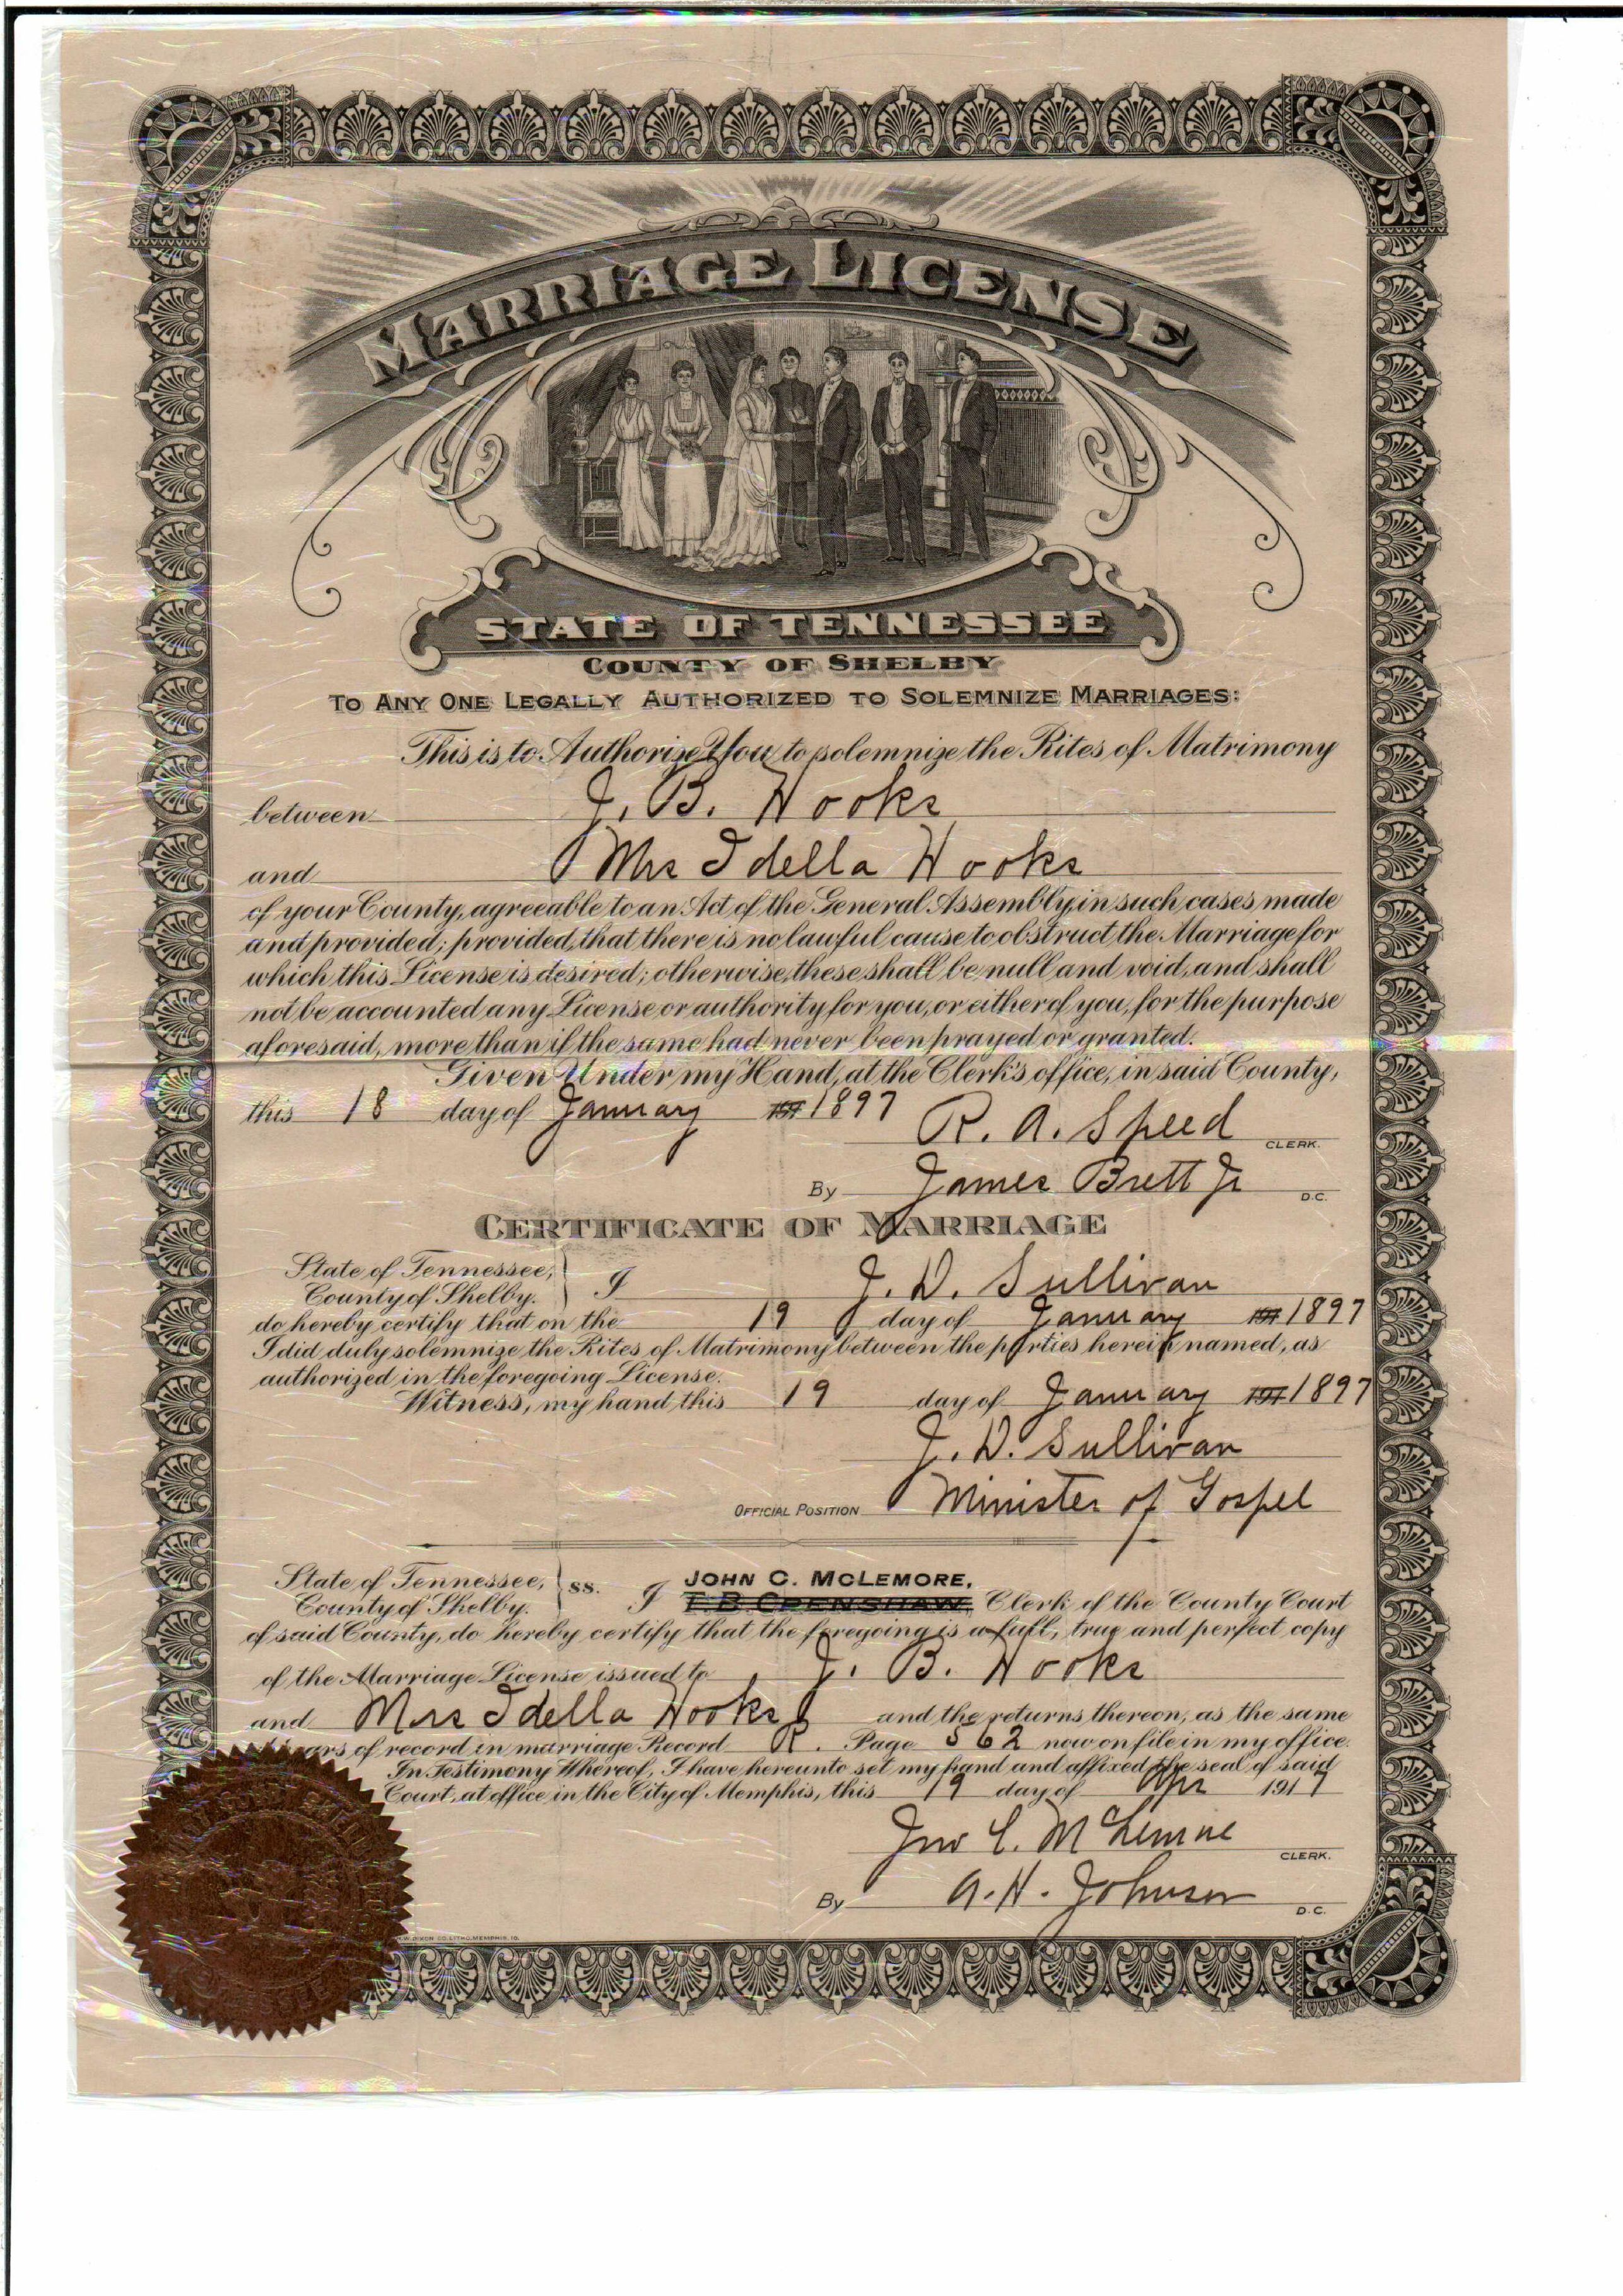 MARRIAGE LICENSE
STATE OF TENNESSEE
COUNTY OF SHELBY
TO ANY ONE LEGALLY AUTHORIZED TO SOLEMNIZE MARRIAGES:
This is to Authorize You to solemnize the Rites of Matrimony
between J. B. Hooks
and Mrs Idella Hooks
of your County, agreeable to an Act of the General Assembly, in such cases made
and provided; provided, that there is no lawful cause to obstruct the Marriage for
which this License is desired; otherwise, these shall be null and void, and shall
not be accounted any License or authority for you, or either of you, for the purpose
aforesaid, more than if the same had never been prayed or granted.
Given Under my Hand, at the Clerk's office, in said County,
this 18 day of January 191 1897
R. A. Speed CLERK.
By James Brett Jr D.C.
CERTIFICATE OF MARRIAGE
State of Tennessee, County of Shelby. I J. D. Sullivan
do hereby certify that on the 19 day of January 191 1897
I did duly solemnize the Rites of Matrimony between the parties herein named, as
authorized in the foregoing License.
Witness, my hand this 19 day of January 191 1897
J. D. Sullivan
OFFICIAL POSITION Minister of Gospel
State of Tennessee, County of Shelby. ss. I JOHN C. MCLEMORE,
T. B. CRENSHAW, Clerk of the County Court
of said County, do hereby certify that the foregoing is a full, true and perfect copy
of the Marriage License issued to J. B. Hooks
and Mrs Idella Hooks and the returns thereon, as the same
of record in marriage Record R. Page 562 now on file in my office.
In Testimony Whereof, I have hereunto set my hand and affixed the seal of said
Court, at office in the City of Memphis, this 19 day of Apr 1917
Jno C. McLemore CLERK.
By A. H. Johnson D.C.
DIXON CO. LITHO. MEMPHIS.